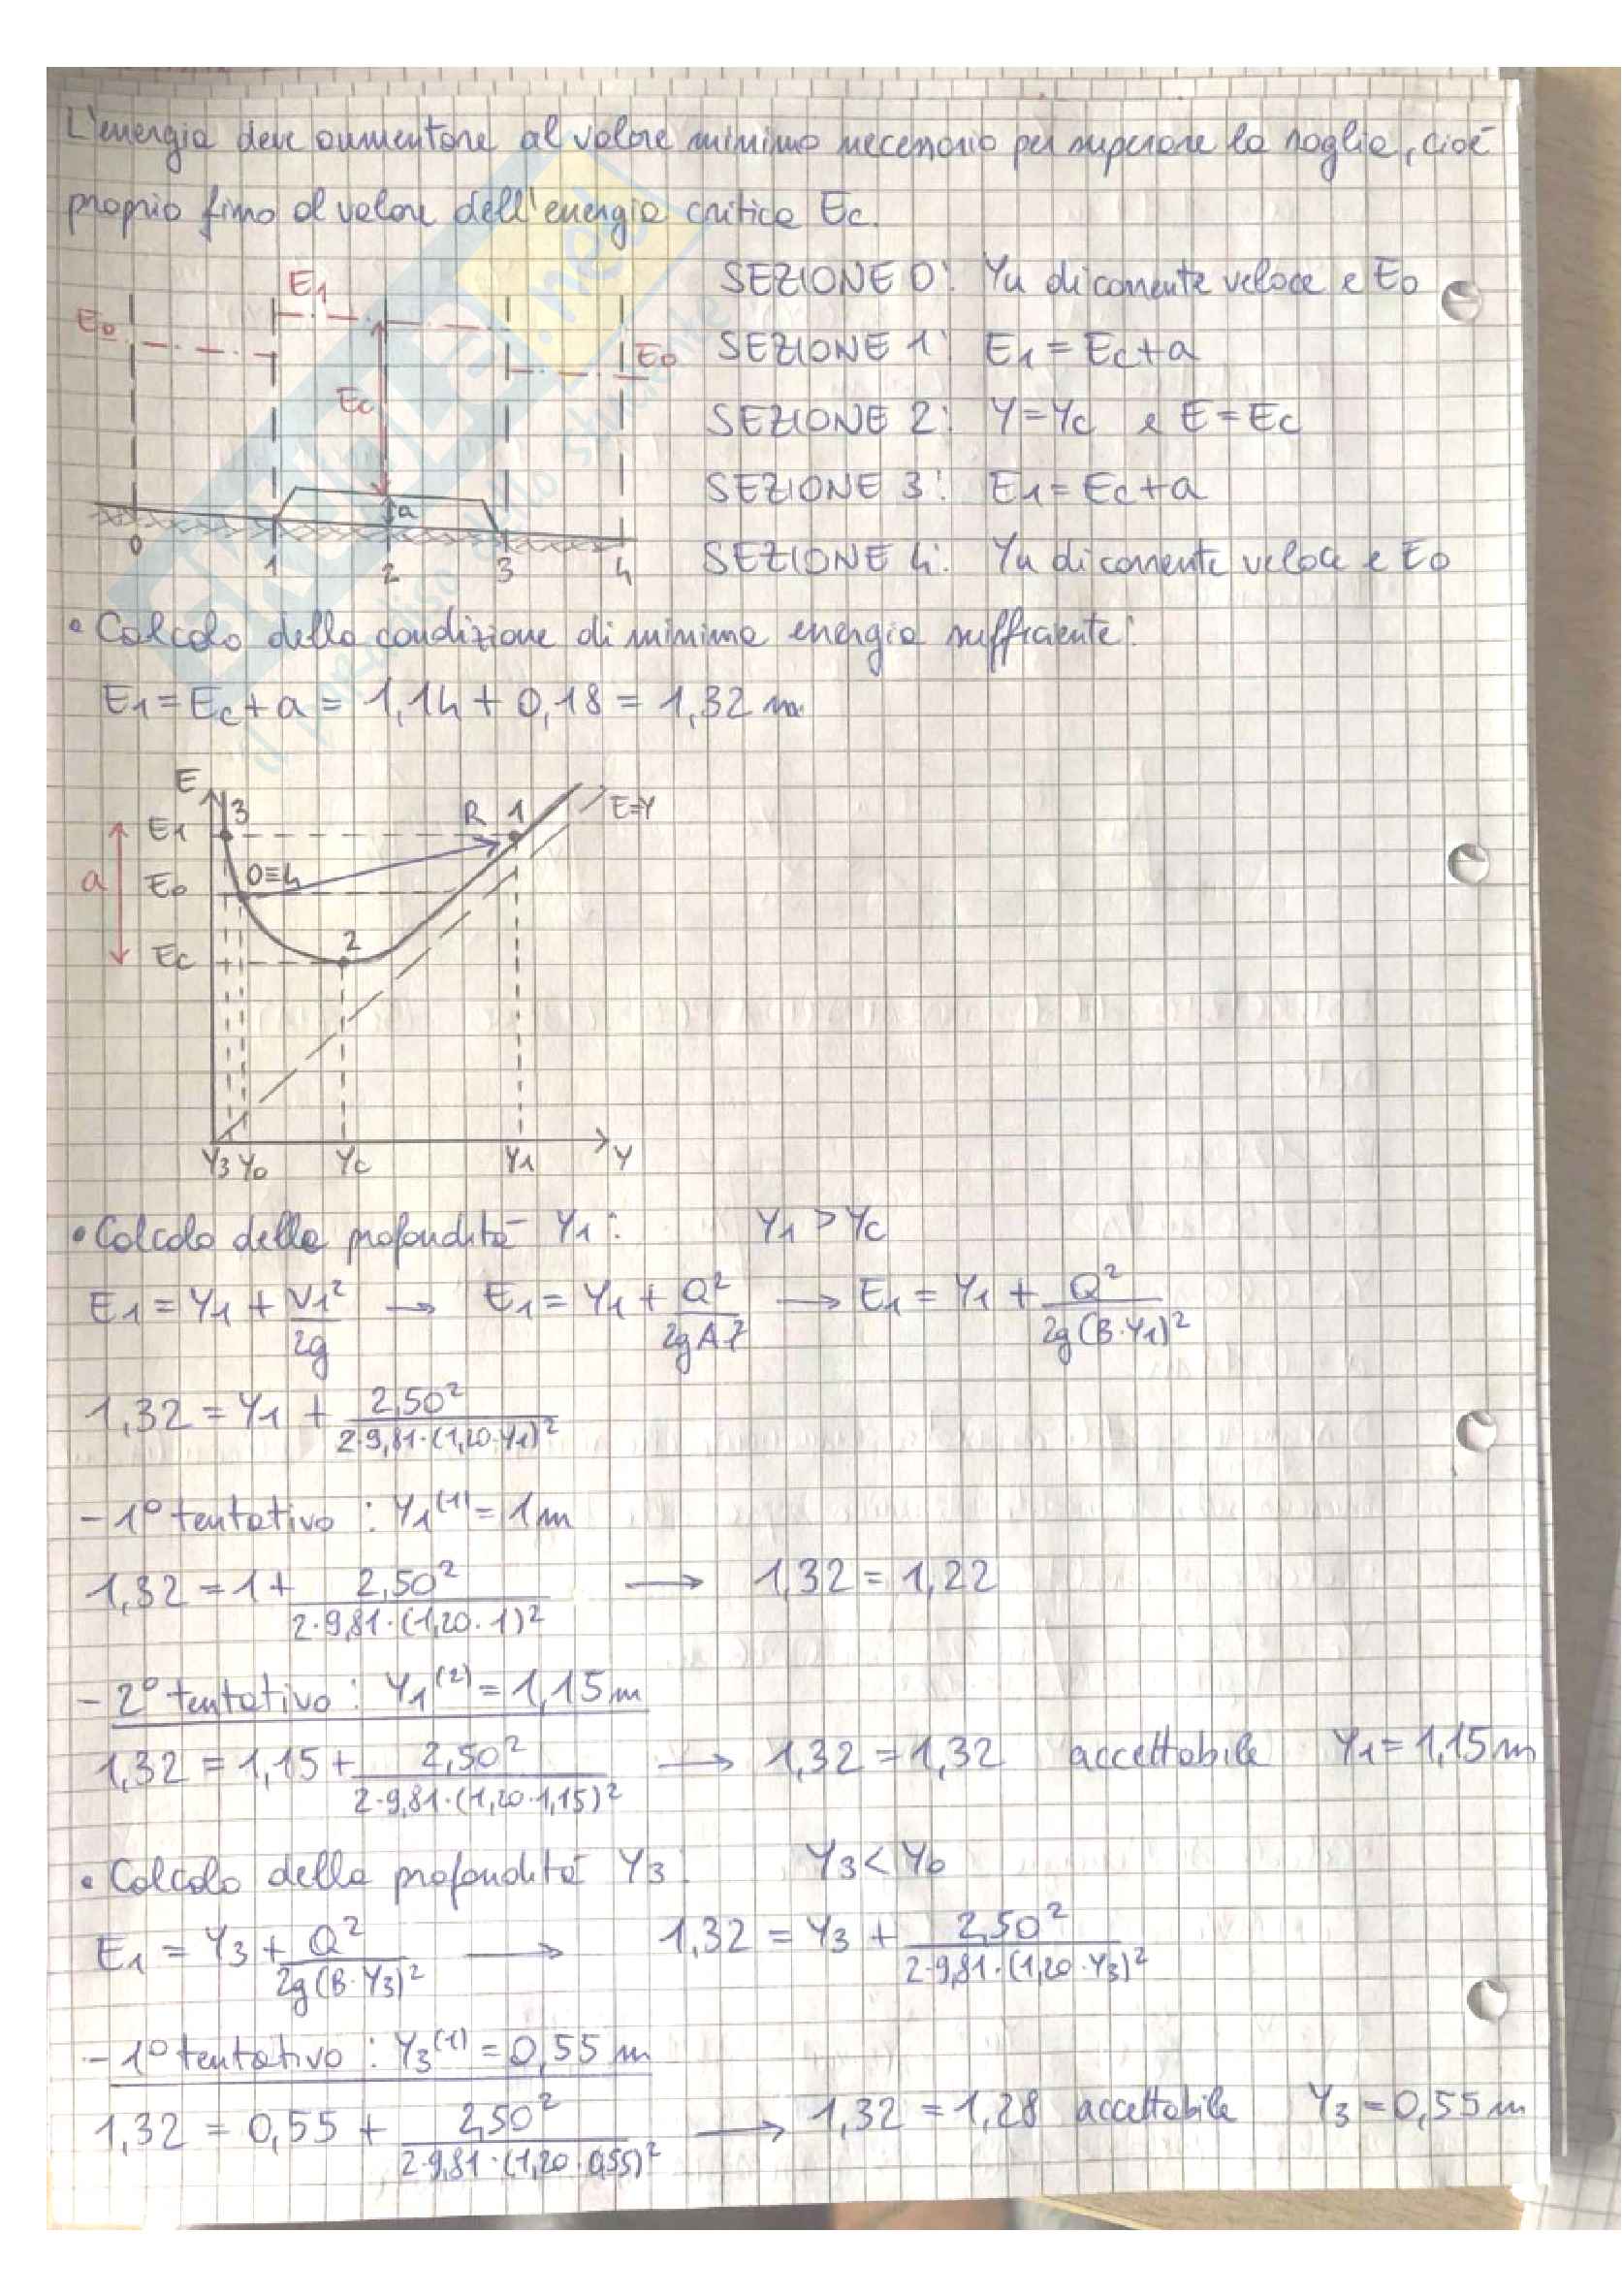 L'energia deve aumentare al valore minimo necessario per superare la soglia, cioè
proprio fino al valore dell'energia critica Ec.
E1
E0
Ec
E0
a
0
1
2
3
4
SEZIONE 0: Yu di corrente veloce e E0
SEZIONE 1: E1 = Ec + a
SEZIONE 2: Y = Yc e E = Ec
SEZIONE 3: E1 = Ec + a
SEZIONE 4: Yu di corrente veloce e E0
SKUOLA.net
il paradiso dello studente
• Calcolo della condizione di minima energia sufficiente:
E1 = Ec + a = 1,14 + 0,18 = 1,32 m
E
3
R
1
E=Y
E1
a
E0
0≡4
Ec
2
Y3 Y0
Yc
Y1
Y
• Calcolo della profondità Y1: Y1 > Yc
E1 = Y1 + V1²/2g → E1 = Y1 + Q²/2gA1² → E1 = Y1 + Q²/2g(B·Y1)²
1,32 = Y1 + 2,50²/2·9,81·(1,20·Y1)²
- 1° tentativo: Y1⁽¹⁾ = 1 m
1,32 = 1 + 2,50²/2·9,81·(1,20·1)² → 1,32 = 1,22
- 2° tentativo: Y1⁽²⁾ = 1,15 m
1,32 = 1,15 + 2,50²/2·9,81·(1,20·1,15)² → 1,32 = 1,32 accettabile Y1 = 1,15 m
• Calcolo della profondità Y3: Y3 < Y0
E1 = Y3 + Q²/2g(B·Y3)² → 1,32 = Y3 + 2,50²/2·9,81·(1,20·Y3)²
- 1° tentativo: Y3⁽¹⁾ = 0,55 m
1,32 = 0,55 + 2,50²/2·9,81·(1,20·0,55)² → 1,32 = 1,28 accettabile Y3 = 0,55 m